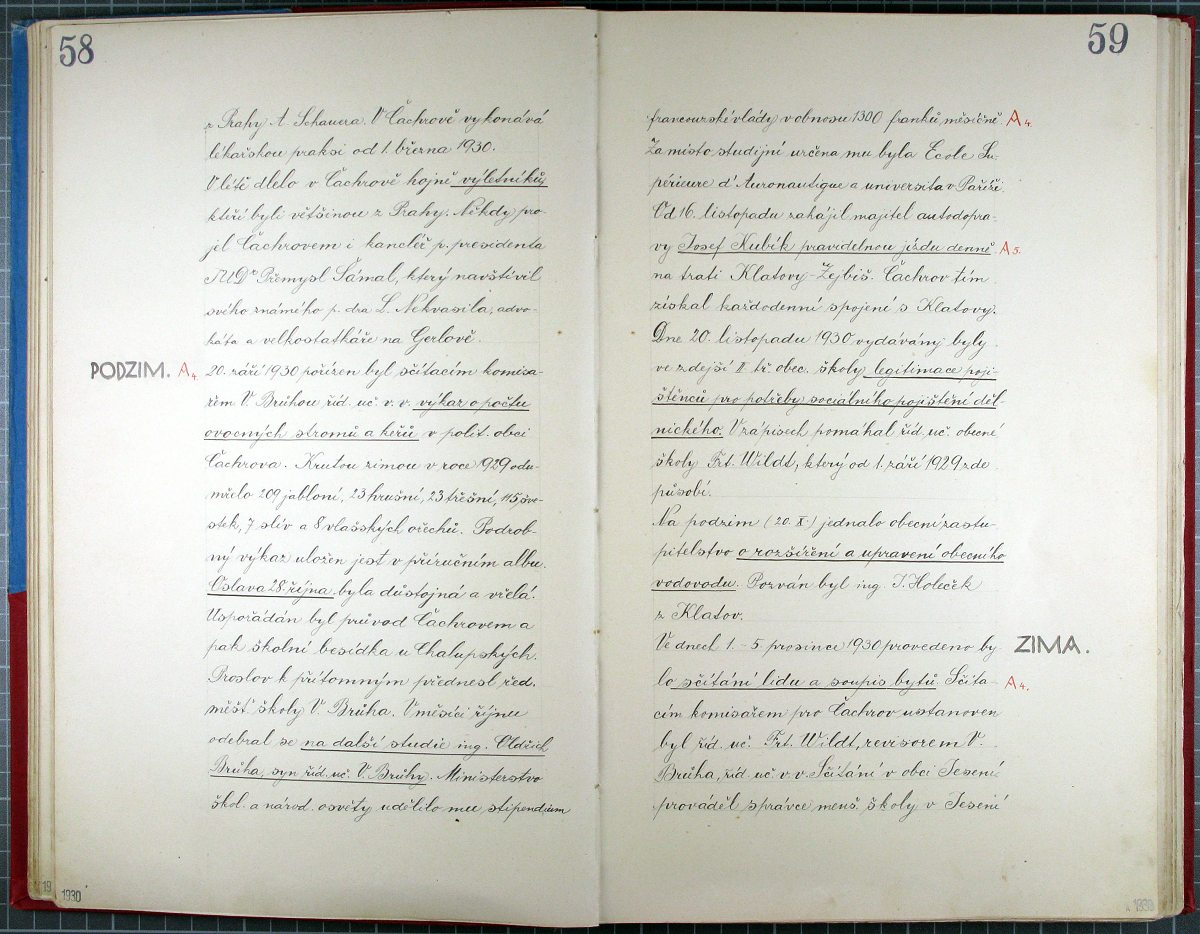 58
z Prahy A. Schauera. V Čachrově vykonává
lékařskou praksi od 1. března 1930.
V létě dlelo v Čachrově hojně výletníků,
kteří byli většinou z Prahy. Někdy pro-
jel Čachrovem i kancléř p. presidenta
JUDr Přemysl Šámal, který navštívil
svého známého p. dra L. Nekvasila, advo-
káta a velkostatkáře na Gerlově.
PODZIM. A4.
20. září 1930 pořízen byl sčítacím komisa-
řem V. Brůhou říd. uč. v. v. výkaz o počtu
ovocných stromů a keřů v polit. obci
Čachrova. Krutou zimou v roce 1929 odu-
mřelo 209 jabloní, 23 hrušní, 23 třešní, 115 šve-
stek, 7 slív a 8 vlašských ořechů. Podrob-
ný výkaz uložen jest v příručním albu.
Oslava 28. října byla důstojná a vřelá.
Uspořádán byl průvod Čachrovem a
pak školní besídka u Chalupských.
Proslov k přítomným přednesl řed.
měšť. školy V. Brůha. V měsíci říjnu
odebral se na další studie ing. Oldřich
Brůha, syn říd. uč. V. Brůhy. Ministerstvo
škol. a národ. osvěty udělilo mu stipendium
19
1930
59
francouzské vlády v obnosu 1300 franků měsíčně. A4.
Za místo studijní určena mu byla Ecole Su-
périeure d'Auronautigue a universita v Paříži.
Od 16. listopadu zahájil majitel autodopra-
vy Josef Kubík pravidelnou jízdu denně A5.
na trati Klatovy-Žejbiš. Čachrov tím
získal každodenní spojení s Klatovy.
Dne 20. listopadu 1930 vydávány byly
ve zdejší II tř. obec. školy legitimace poji-
štěnců pro potřeby sociálního pojištění děl-
nického. V zápisech pomáhal říd. uč. obecné
školy Frt. Wildt, který od 1. září 1929 zde
působí.
Na podzim (20. X.) jednalo obecní zastu-
pitelstvo o rozšíření a upravení obecního
vodovodu. Pozván byl ing. J. Holeček
z Klatov.
Ve dnech 1. - 5. prosince 1930 provedeno by- ZIMA.
lo sčítání lidu a soupis bytů. Sčíta- A4.
cím komisařem pro Čachrov ustanoven
byl říd. uč. Frt. Wildt, revisorem V.
Brůha, říd. uč. v. v. Sčítání v obci Jesení
prováděl správce menš. školy v Jesení
1930